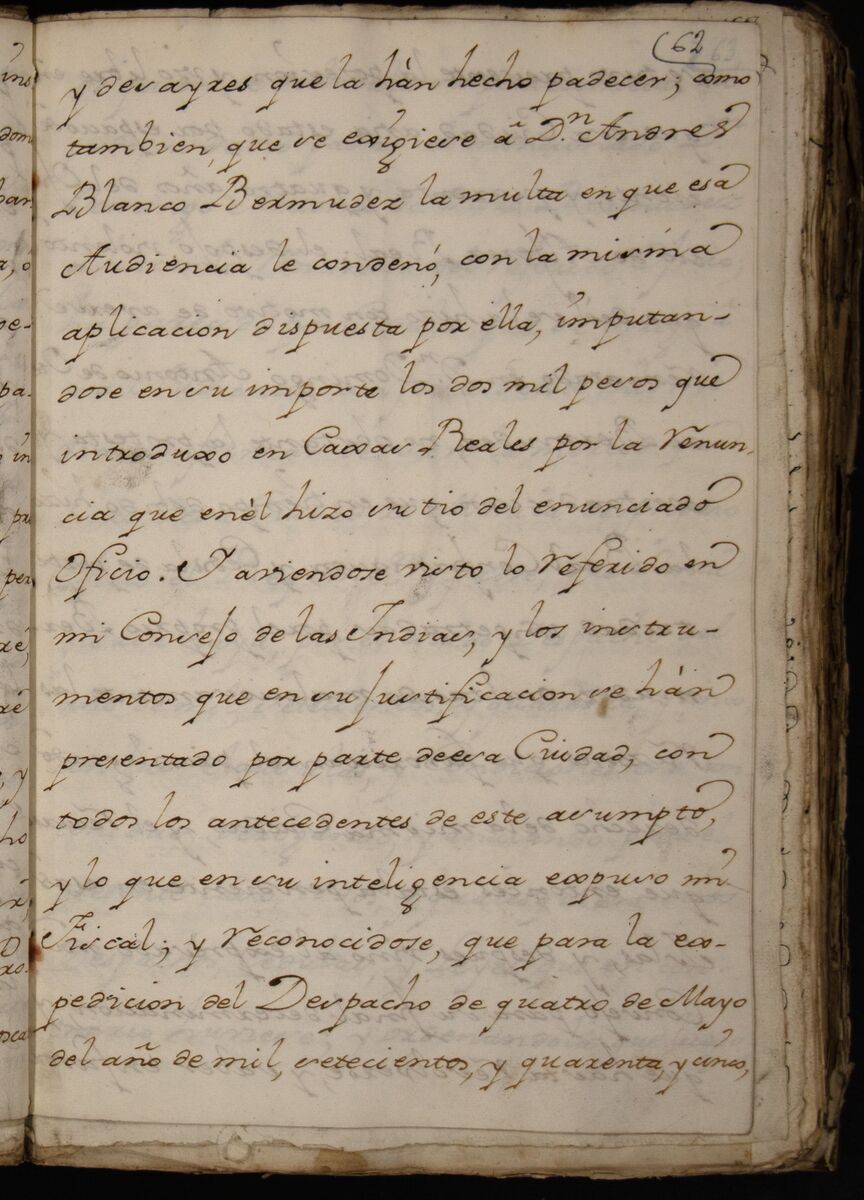 62
y desayres que la hàn hecho padecer; como
tambien, que se exigiese â D.n Andres
Blanco Bermudez la multa en que esa
Audiencia le condenó, con la misma
aplicacion dispuesta por ella, imputan-
dose en su importe los dos mil pesos que
introduxo en Caxas Reales por la renun,
cia que en èl hizo su tio del enunciado
Oficio. Y aviendose visto lo referido en
mi Consejo de las Indias, y los instru-
mentos que en su justificacion se hàn
presentado por parte de esa Ciudad, con
todos los antecedentes de este asumpto,
y lo que en su inteligencia expuso mi
Fiscal; y reconocidose, que para la ex-
pedicion del Despacho de quatro de Mayo
del año de mil, setecientos, y quarenta, y cinco,